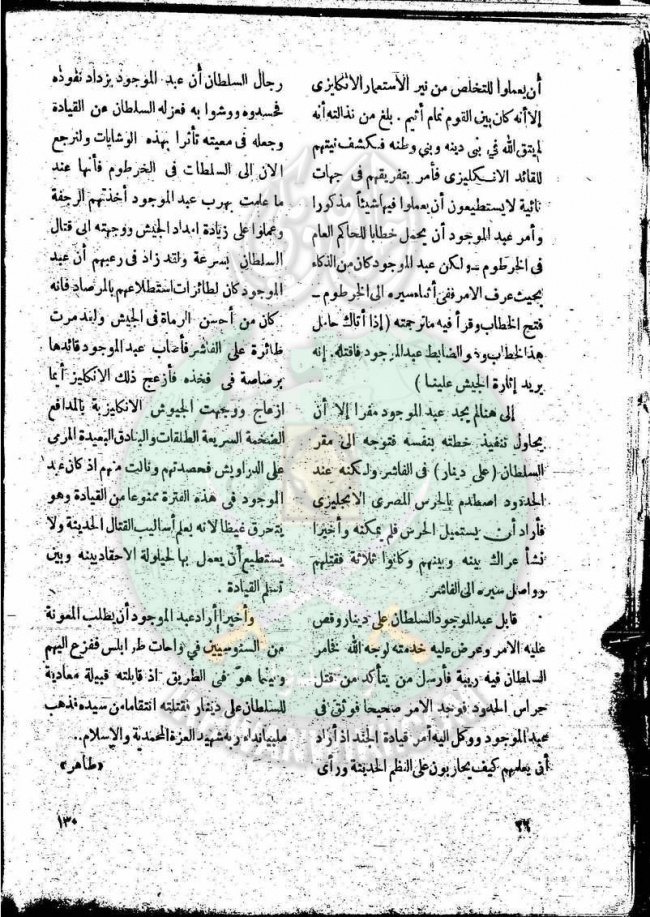 أن يعملوا للتخلص من نير الاستعمار الانكليزى
إلا أنه كان بين القوم نمام أثيم . بلغ من نذالته أنه
لم يتق الله في بنى دينه وبني وطنه فكشف نيتهم
للقائد الانكليزى فأمر بتفريقهم فى جهات
نائية لا يستطيعون أن يعملوا فيها شيئاً مذكورا
وأمر عبد الموجود أن يحمل خطابا للحاكم العام
فى الخرطوم ــ ولكن عبد الموجود كان من الذكاء
بحيث عرف الامر ففى أثناء سيره الى الخرطوم ــ
فتح الخطاب وقرأ فيه ما ترجمته ( إذا أتاك حامل
هذا الخطاب وهو الضابط عبد الموجود فاقتله . إنه
يريد إثارة الجيش علينا )
إلى هنا لم يجد عبد الموجود مفرا إلا أن
يحاول تنفيذ خطته بنفسه فتوجه الى مقر
السلطان ( على دينار ) فى الفاشر ولكنه عند
الحدود اصطدم بالحرس المصرى الانجليزى
فأراد أن يستميل الحرس فلم يمكنه وأخيرا
نشأ عراك بينه وبينهم وكانوا ثلاثة فقتلهم
وواصل سيره الى الفاشر
قابل عبد الموجود السلطان على دينار وقص
عليه الامر وعرض عليه خدمته لوجه الله فخامر
السلطان فيه ريبة فأرسل من يتأكد من قتل
حراس الحدود فوجد الامر صحيحا فوثق فى
عبد الموجود ووكل اليه أمر قيادة الجند اذ أراد
أن يعلمهم كيف يحاربون على النظم الحديثة ورأى
٢٦
رجال السلطان أن عبد الموجود يزداد نفوذه
فحسدوه ووشوا به فعزله السلطان عن القيادة
وجعله فى معيته تأثرا بهذه الوشايات ولنرجع
الان الى السلطات فى الخرطوم فأنها عند
ما علمت بهرب عبد الموجود أخذتهم الرجفة
وعملوا على زيادة امداد الجيش ووجهته الى قتال
السلطان بسرعة ولقد زاد فى رعبهم أن عبد
الموجود كان لطائرات استطلاعهم بالمرصاد فانه
كان من أحسن الرماة فى الجيش ولقد مرت
طائرة على الفاشر فأصاب عبد الموجود قائدها
برصاصة فى فخذه فأزعج ذلك الانكليز أيما
ازعاج ووجهت الجيوش الانكليزية بالمدافع
الضخمة السريعة الطلقات والبنادق البعيدة المرمى
على الدراويش فحصدتهم ونالت منهم اذ كان عبد
الموجود فى هذه الفترة ممنوعا من القيادة وهو
يتحرق غيظا لانه يعلم أساليب القتال الحديثة ولا
يستطيع أن يعمل بها لحيلولة الاحقاد بينه وبين
تسلم القيادة .
وأخيرا أراد عبد الموجود أن يطلب المعونة
من السنوسيين في واحات طرابلس ففزع اليهم
وبينما هو فى الطريق اذ قابلته قبيلة معادية
للسلطان على دينار فقتلته انتقاما من سيده فذهب
ملبيا نداء ربه شهيد العزة المحمدية والإسلام..
«طاهر»
١٣٠